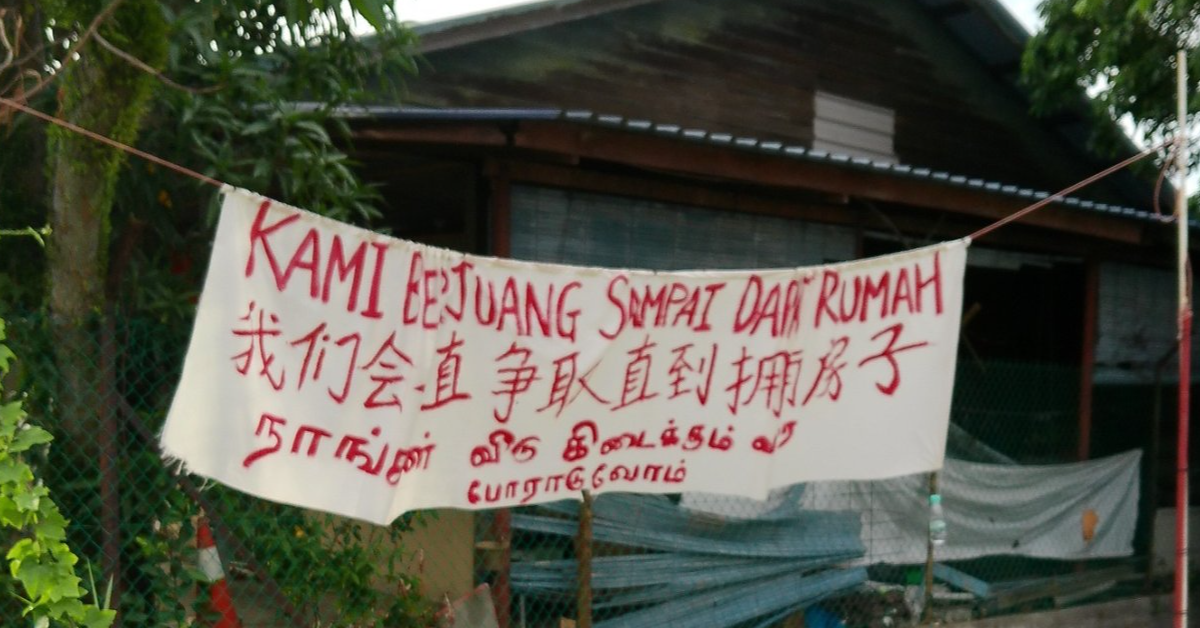 KAMI BERJUANG SAMPAI DAPAT RUMAH
我们会直争取直到拥房子
நாங்கள் வீடு கிடைக்கும் வர
போராடுவோம்